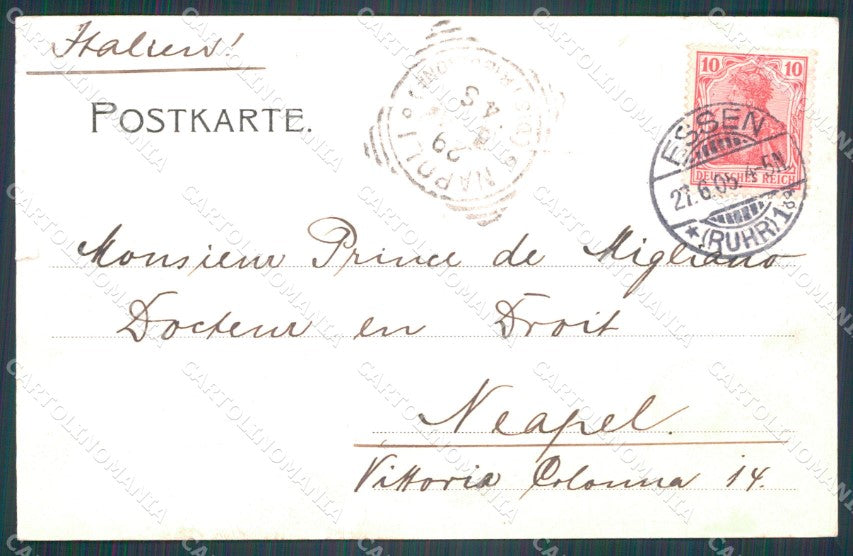 Italien!
POSTKARTE.
NAPOLI
29
10
10
DEUTSCHES REICH
ESSEN
27.6.05. 4-5N.
★(RUHR)1
Monsieur Prince de Migliano
Docteur en Droit
Neapel.
Vittoria Colonna 14.
CARTOLINOMANIA